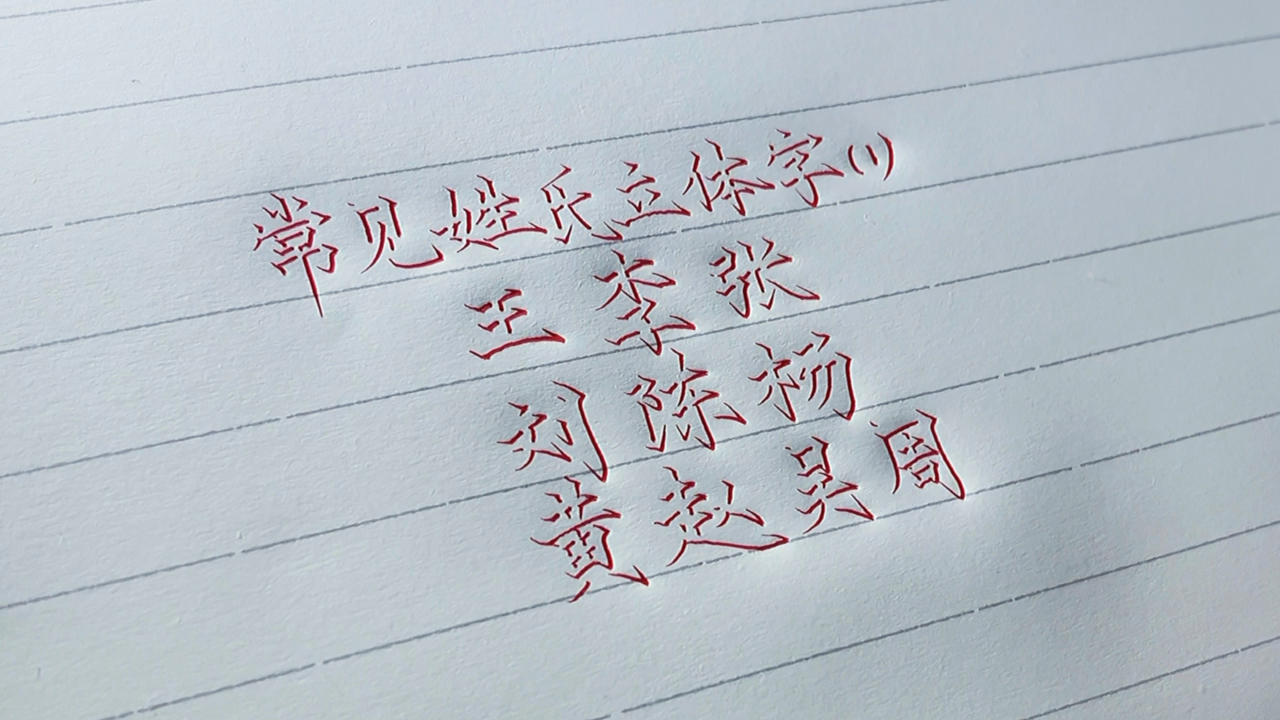 常见姓氏立体字(1)
王 李 张
刘 陈 杨
黄 赵 吴 周